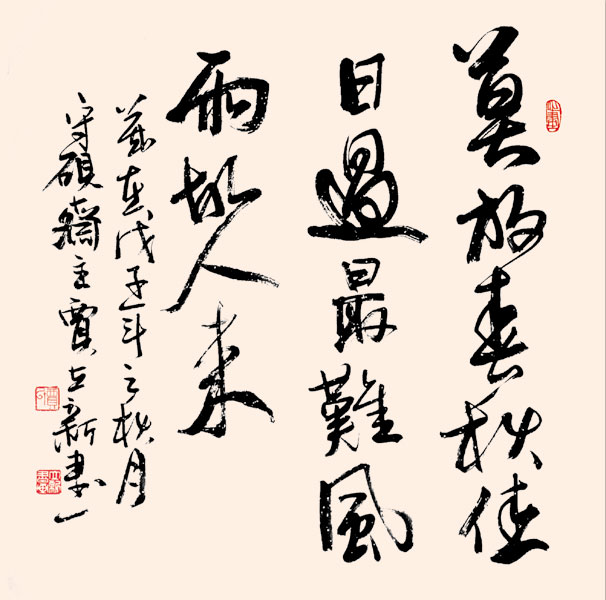 莫放春秋佳
日過最難風
雨故人來
歲在戊子年之秋月
守硯齋主賈立新書